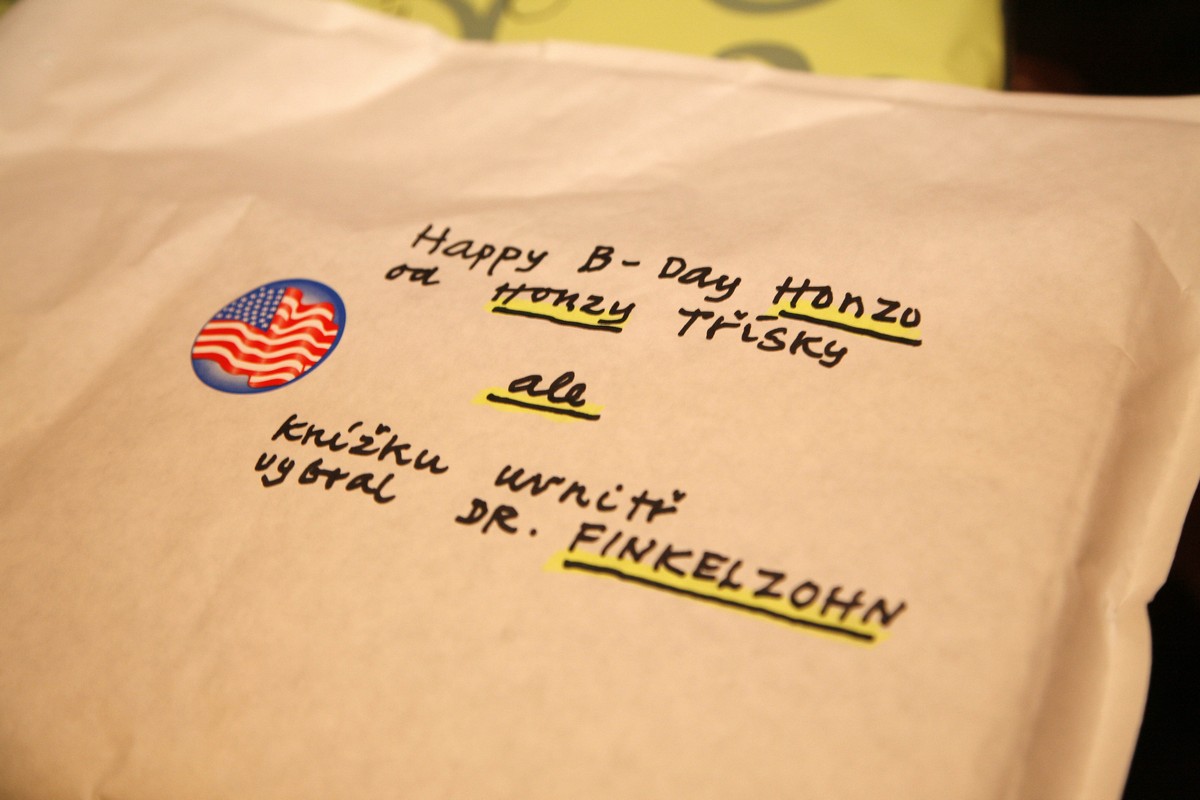 Happy B-Day Honzo
od Honzy Třísky
ale
knížku uvnitř
vybral DR. FINKELZOHN